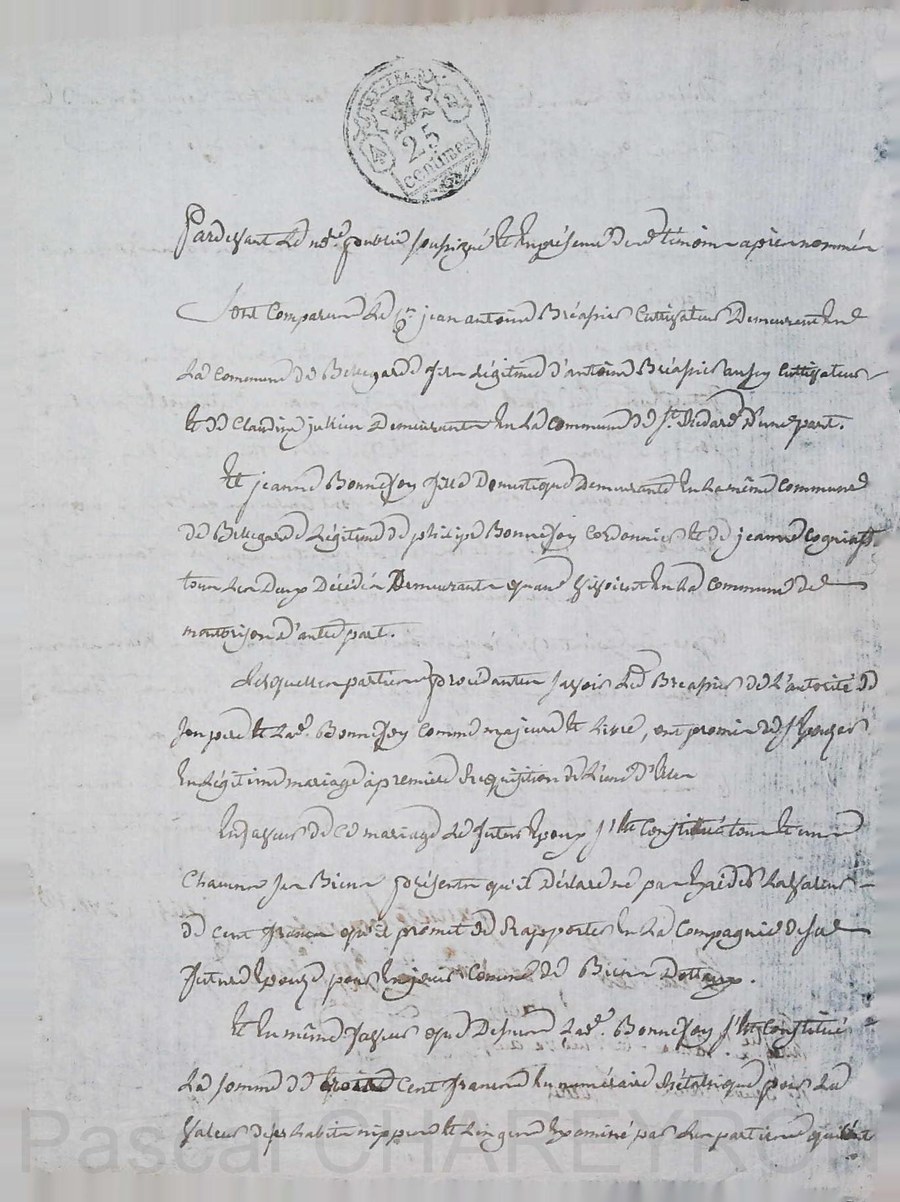 REP. FRA.
25
centimes
Pardevant Le n.re public soussigné et En présence de témoins apres nommés
Sont Comparus Le C.n jean antoine Bréassier Cultivateur Demeurant En
La Commune de Bellegarde fils Légitime d'antoine Bréassier aussy Cultivateur
et de Claudine jullien Demeurants En La Commune de S.t d'une part.
Et jeanne Bonnefoy fille Domestique Demeurante En La même Commune
de Bellegarde Légitime de philipe Bonnefoy Cordonnier et de jeanne
tous Les Deux Décédés Demeurants quand vivoient En La Commune de
montbrison d'autre part.
Lesquelles parties procédantes savoir Led. Breassier de L'autorité de
son pere et La d.e Bonnefoy Comme majeure et Livre, ont promis de s'Epouser
En Légitime mariage à premiere Réquisition de L'une d'Elles
En faveur de Ce mariage Le futur Epoux s'Est Constitué tous et uns
Chacuns ses Biens présents qu'il Déclare ne pas Exéder La valeur
de Cent francs qu'il promet de Rapporter En La Compagnie de sa
future Epouse pour En jouir Comme de Biens Dottaux.
Et En même faveur que Dessus La d.e Bonnefoy s'Est Constitué
La somme de Cent francs En numéraire métalique pour La
Valeur de ses habits nippes et Linges Examiné par Les parties
Pascal CHAREYRON